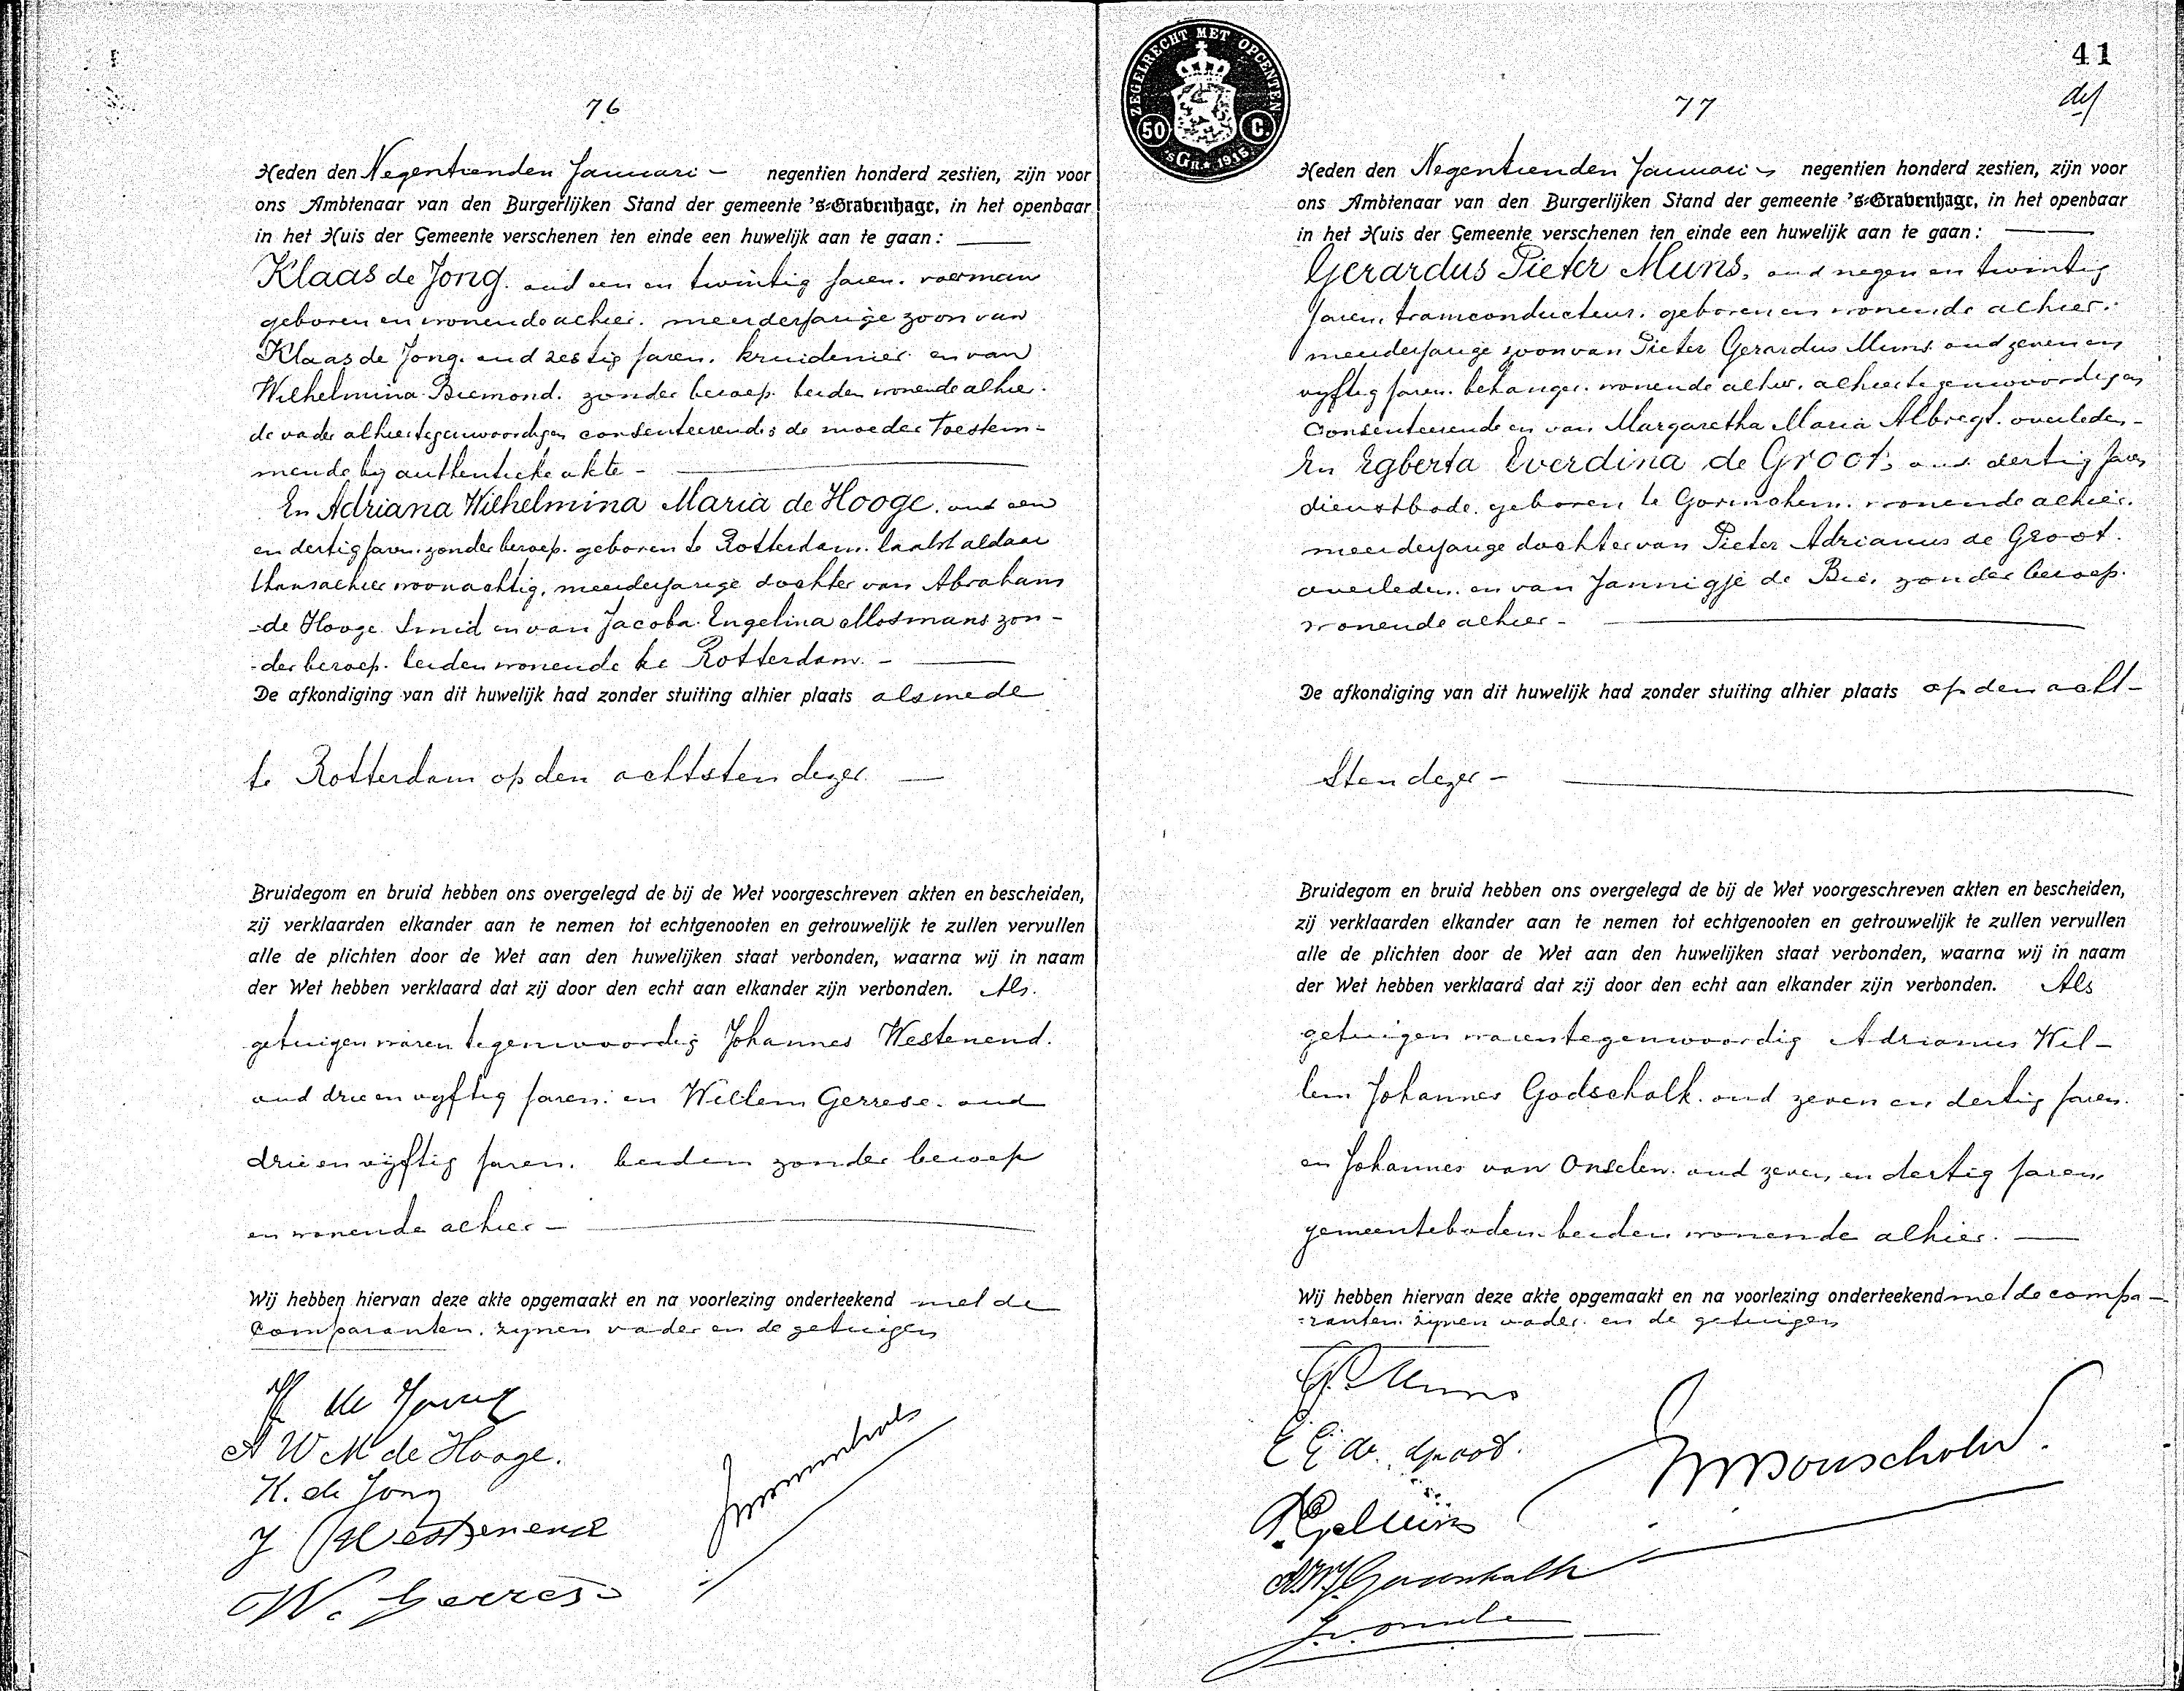 76
Heden den Negentienden Januari – negentien honderd zestien, zijn voor
ons Ambtenaar van den Burgerlijken Stand der gemeente 's-Gravenhage, in het openbaar
in het Huis der Gemeente verschenen ten einde een huwelijk aan te gaan:
Klaas de Jong. oud een en twintig jaren. voerman
geboren en wonende alhier. meerderjarige zoon van
Klaas de Jong. oud zestig jaren. kruidenier en van
Wilhelmina Biemond. zonder beroep. beiden wonende alhier.
de vader alhier tegenwoordig en consenteerende; de moeder toestem-
mende bij authentieke akte –
En Adriana Wilhelmina Maria de Hooge. oud een
en dertig jaren. zonder beroep. geboren te Rotterdam. laatst aldaar
thans alhier woonachtig, meerderjarige dochter van Abraham
de Hooge Smid en van Jacoba Engelina Mosmans zon-
der beroep. beiden wonende te Rotterdam. –
De afkondiging van dit huwelijk had zonder stuiting alhier plaats alsmede
te Rotterdam op den achtsten dezer. —
Bruidegom en bruid hebben ons overgelegd de bij de Wet voorgeschreven akten en bescheiden,
zij verklaarden elkander aan te nemen tot echtgenooten en getrouwelijk te zullen vervullen
alle de plichten door de Wet aan den huwelijken staat verbonden, waarna wij in naam
der Wet hebben verklaard dat zij door den echt aan elkander zijn verbonden. Als
getuigen waren tegenwoordig Johannes Westenend.
oud drie en vijftig jaren. en Willem Gerrese. oud
drie en vijftig jaren. beiden zonder beroep
en wonende alhier –
Wij hebben hiervan deze akte opgemaakt en na voorlezing onderteekend met de
comparanten. zijnen vader en de getuigen
K de Jong
A W M de Hooge.
K. de Jong
J Westenend
W. Gerrese
ZEGELRECHT MET OPCENTEN
50 C.
'sGR. 1915
41
77
Heden den Negentienden Januari – negentien honderd zestien, zijn voor
ons Ambtenaar van den Burgerlijken Stand der gemeente 's-Gravenhage, in het openbaar
in het Huis der Gemeente verschenen ten einde een huwelijk aan te gaan:
Gerardus Pieter Muns, oud negen en twintig
jaren. tramconducteur. geboren en wonende alhier.
meerderjarige zoon van Pieter Gerardus Muns oud zeven en
vijftig jaren. behanger. wonende alhier. alhier tegenwoordig en
Consenteerende en van Margaretha Maria Albregt. overleden –
En Egberta Everdina de Groot, oud dertig jaren
dienstbode. geboren te Gorinchem. wonende alhier.
meerderjarige dochter van Pieter Adrianus de Groot.
overleden. en van Jannigje de Bie, zonder beroep.
wonende alhier –
De afkondiging van dit huwelijk had zonder stuiting alhier plaats op den acht-
sten dezer –
Bruidegom en bruid hebben ons overgelegd de bij de Wet voorgeschreven akten en bescheiden,
zij verklaarden elkander aan te nemen tot echtgenooten en getrouwelijk te zullen vervullen
alle de plichten door de Wet aan den huwelijken staat verbonden, waarna wij in naam
der Wet hebben verklaard dat zij door den echt aan elkander zijn verbonden. Als
getuigen waren tegenwoordig Adrianus Wil-
lem Johannes Godschalk. oud zeven en dertig jaren.
en Johannes van Onselen. oud zeven en dertig jaren
gemeenteboden. beiden wonende alhier. —
Wij hebben hiervan deze akte opgemaakt en na voorlezing onderteekend met de compa-
ranten. zijnen vader en de getuigen
G. P. Muns
E E de Groot.
P G Muns
A.W.J. Godschalk